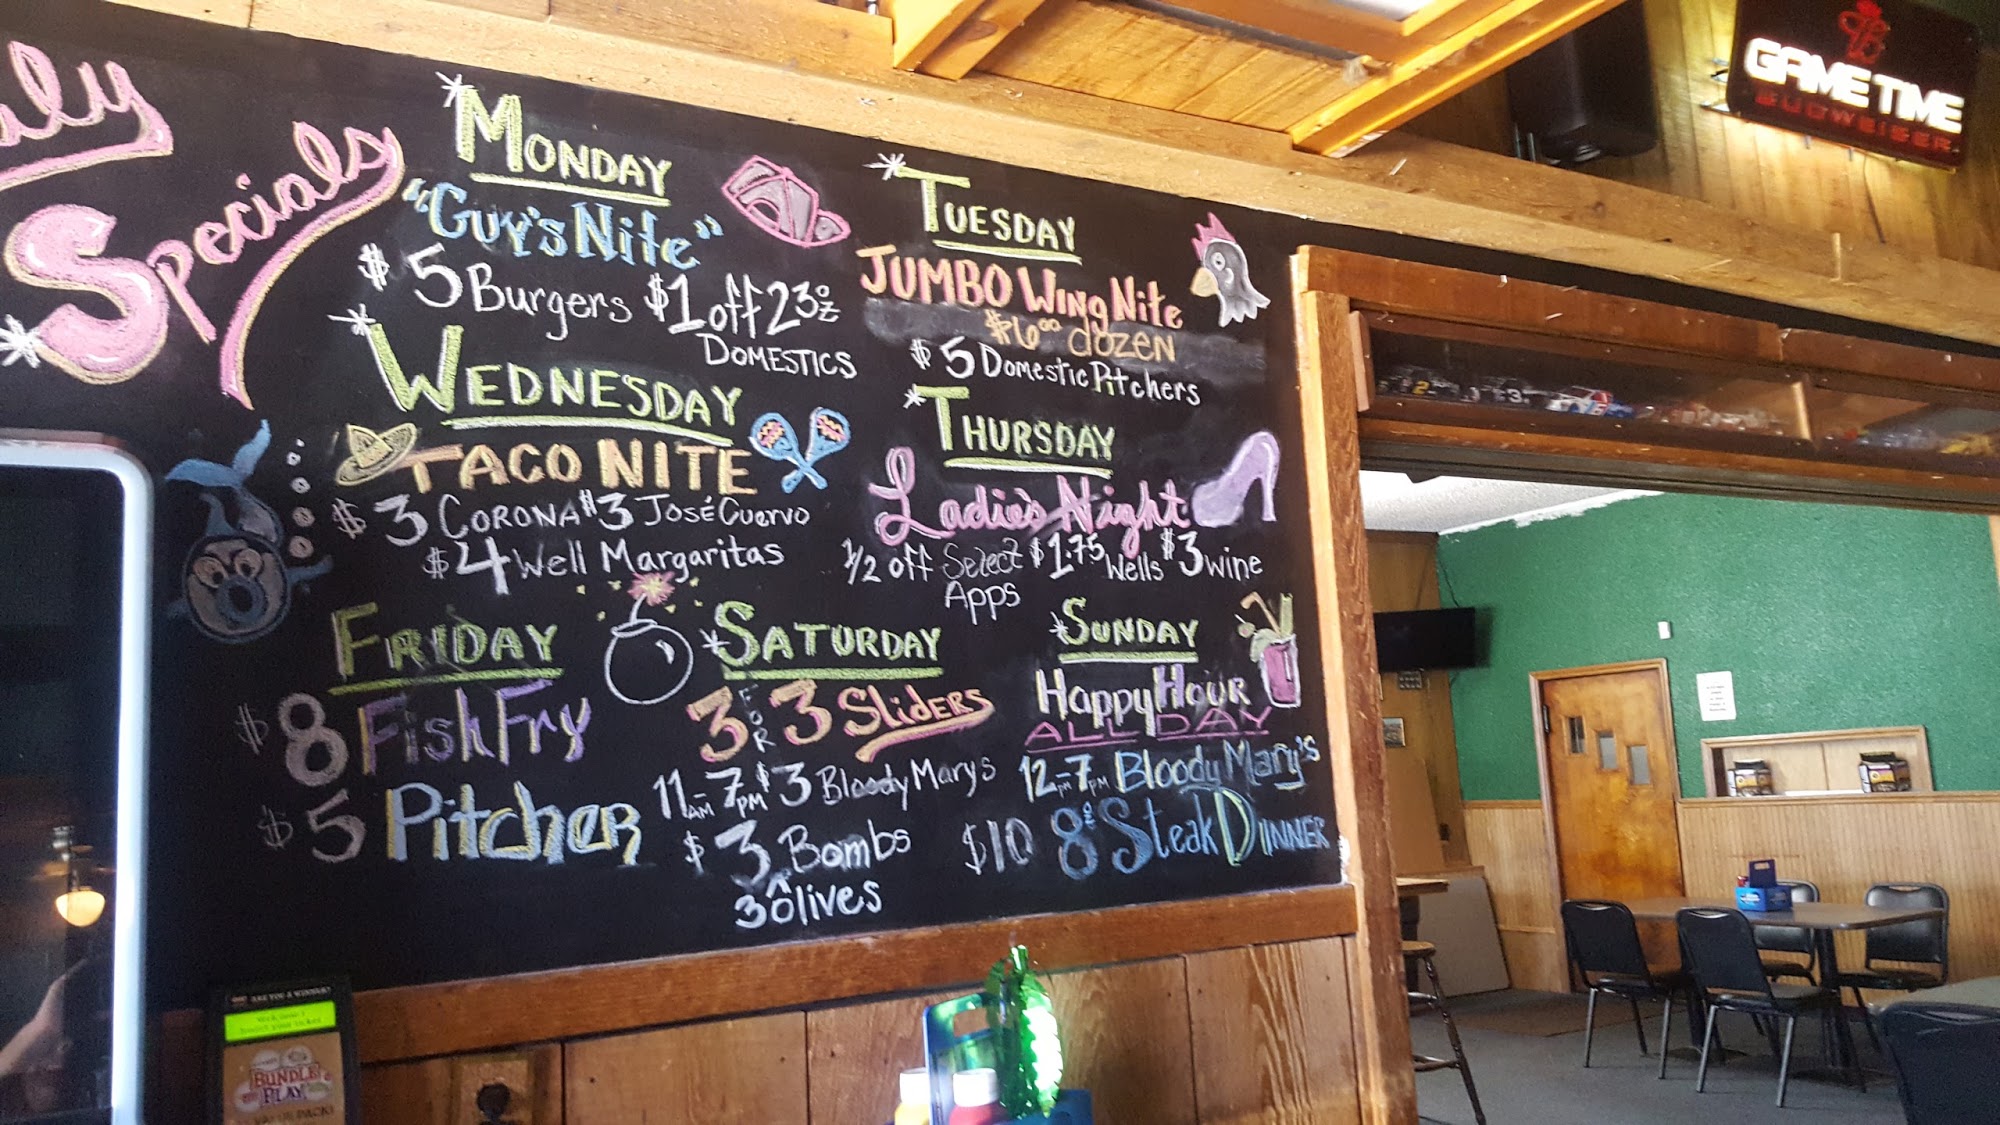 Specials
MONDAY
"GUY'S Nite"
$5 Burgers $1 off 23oz
DOMESTICS
TUESDAY
JUMBO WING Nite
$6.00 dozen
$5 Domestic Pitchers
WEDNESDAY
TACO NITE
$3 CORONA $3 José Cuervo
$4 Well Margaritas
THURSDAY
Ladie's Night
1/2 off Select $1.75 Wells $3 wine
Apps
FRIDAY
$8 Fish Fry
$5 Pitcher
SATURDAY
3 FOR 3 SliDERS
11AM-7PM $3 Bloody Marys
$3 Bombs
3 Olives
SUNDAY
Happy Hour
ALL DAY
12PM-7PM Bloody Mary's
$10 8oz Steak DINNER
GAME TIME
BUDWEISER
2
3
ARE YOU A WINNER?
BUNDLE
PLAY